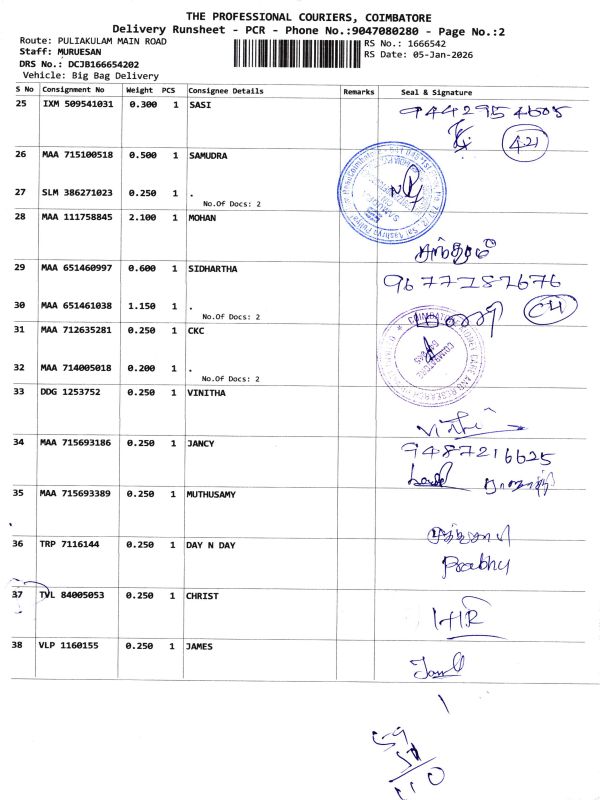 THE PROFESSIONAL COURIERS, COIMBATORE
Delivery Runsheet - PCR - Phone No.:9047080280 - Page No.:2
Route: PULIAKULAM MAIN ROAD
Staff: MURUESAN
RS No.: 1666542
DRS No.: DCJB166654202
RS Date: 05-Jan-2026
Vehicle: Big Bag Delivery
S No Consignment No Weight PCS Consignee Details Remarks Seal & Signature
25 IXM 509541031 0.300 1 SASI
421
26 MAA 715100518 0.500 1 SAMUDRA
27 SLM 386271023 0.250 1 .
No.Of Docs: 2
28 MAA 111758845 2.100 1 MOHAN
29 MAA 651460997 0.600 1 SIDHARTHA
9677287676
30 MAA 651461038 1.150 1 .
No.Of Docs: 2
31 MAA 712635281 0.250 1 CKC
32 MAA 714005018 0.200 1 .
No.Of Docs: 2
33 DDG 1253752 0.250 1 VINITHA
34 MAA 715693186 0.250 1 JANCY
9487216625
35 MAA 715693389 0.250 1 MUTHUSAMY
36 TRP 7116144 0.250 1 DAY N DAY
Prabhu
37 TVL 84005053 0.250 1 CHRIST
38 VLP 1160155 0.250 1 JAMES